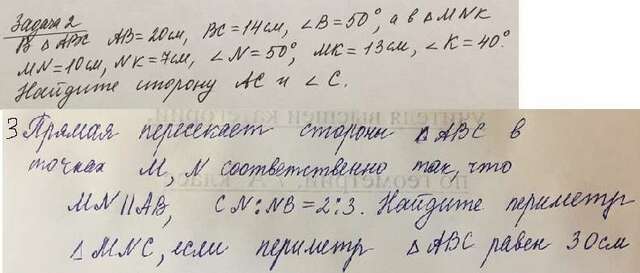 Задача 2
В △ ABC AB = 20см, BC = 14см, ∠B = 50°, а в △ MNK
MN = 10см, NK = 7см, ∠N = 50°, MK = 13см, ∠K = 40°
Найдите сторону AC и ∠C.
учителя высшей категории
3 Прямая пересекает стороны △ ABC в
точках M, N соответственно так, что
по геометрии. 7 "А" класс
MN || AB, CN : NB = 2 : 3. Найдите периметр
△ MNC, если периметр △ ABC равен 30см